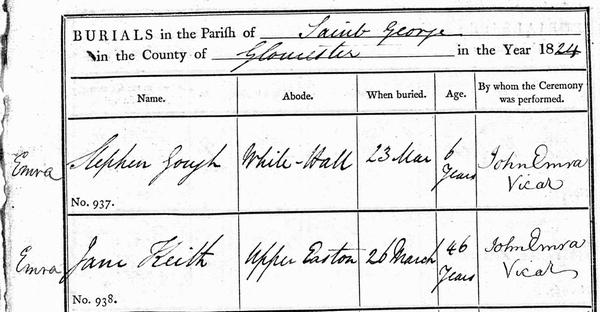 BURIALS in the Parish of Saint George
in the County of Gloucester in the Year 1824
Name. Abode. When buried. Age. By whom the Ceremony was performed.
Emra Stephen Gough White-Hall 23 Mar 6 Years John Emra Vicar
No. 937.
Emra Jane Keith Upper Easton 26 March 46 Years John Emra Vicar
No. 938.